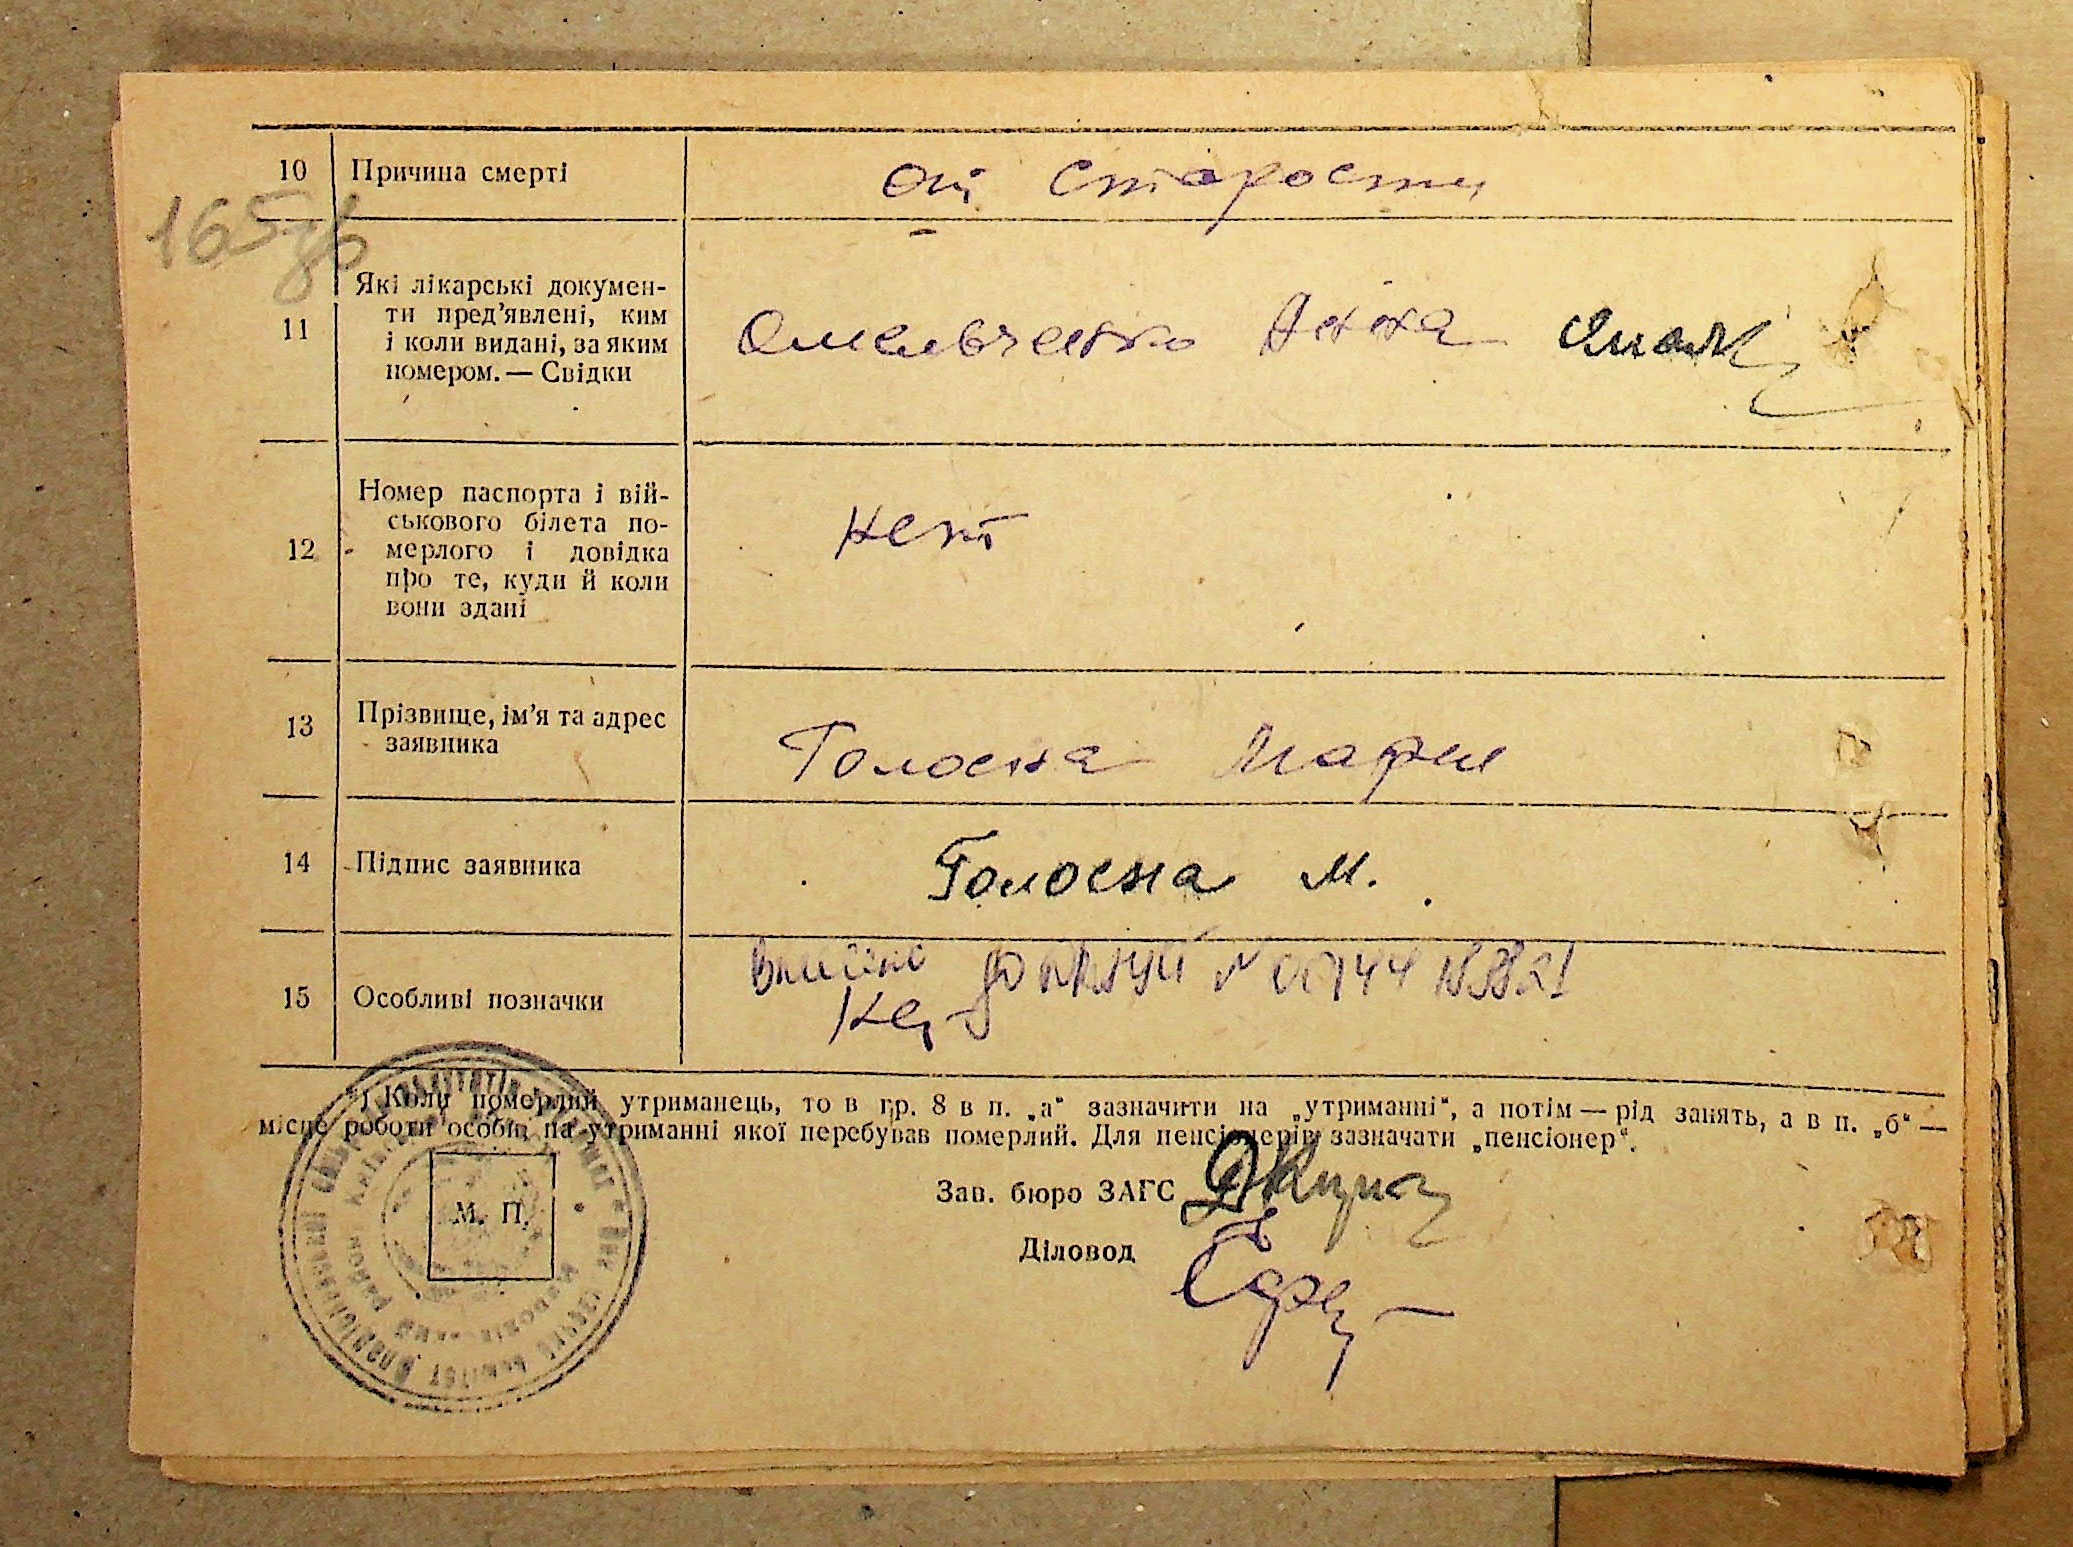 10 Причина смерті от старости
165зв
11 Які лікарські докумен-
ти пред'явлені, ким
і коли видані, за яким
номером. — Свідки
Омельченко Анна
12 Номер паспорта і вій-
ськового білета по-
мерлого і довідка
про те, куди й коли
вони здані
нет
13 Прізвище, ім'я та адрес
заявника
Голосна Мария
14 Підпис заявника Голосна М.
15 Особливі позначки
*) Коли померлий утриманець, то в гр. 8 в п. „а“ зазначити на „утриманні“, а потім — рід занять, а в п. „б“ —
місце роботи особи, на утриманні якої перебував померлий. Для пенсіонерів зазначати „пенсіонер“.
М. П.
Зав. бюро ЗАГС
Діловод